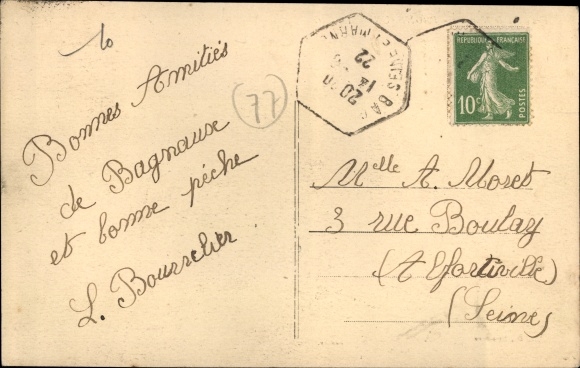 10
Bonnes Amitiés
de Bagnaux
et bonne pêche
L. Bourrelier
77
20
14
22
SEINE ET MARNE
REPUBLIQUE FRANÇAISE
10c
POSTES
Mlle A. Moret
3 rue Boulay
(Alfortville)
(Seine)